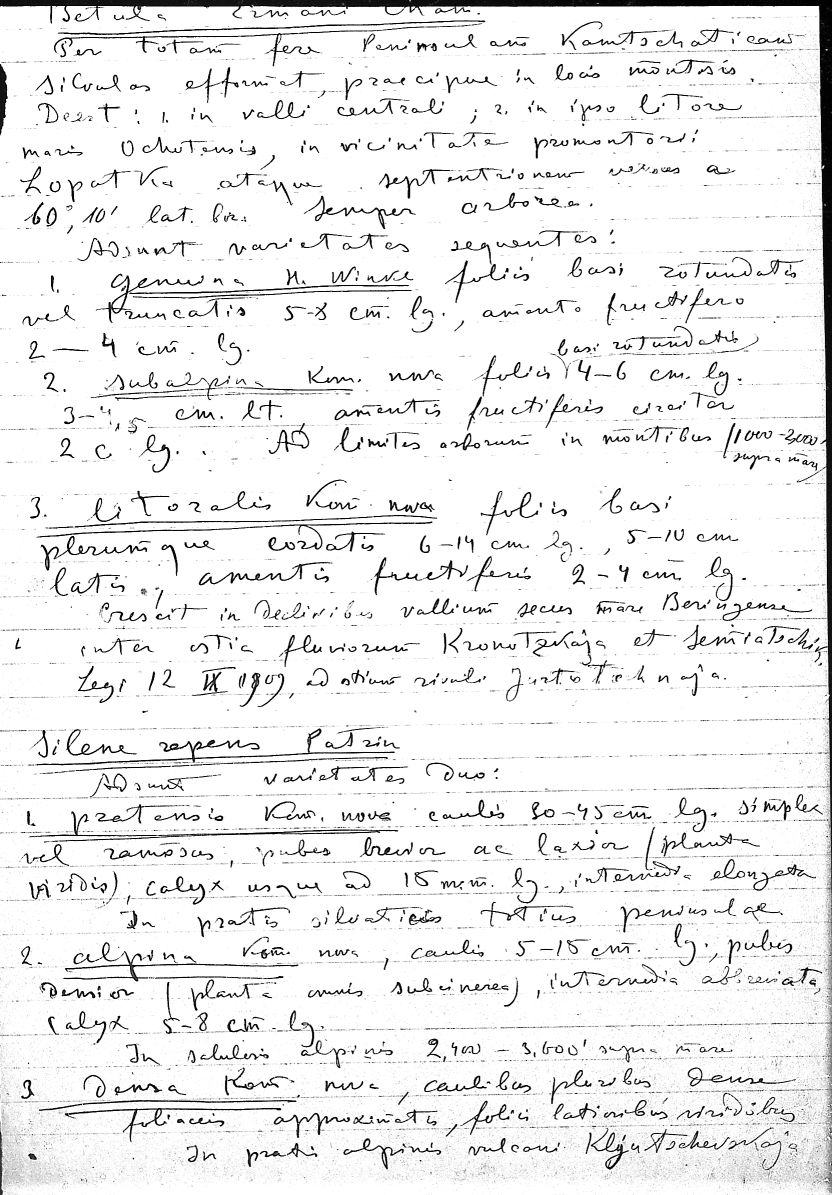 Betula Ermani Cham.
Per totam fere Peninsulam Kamtschaticam
silvulas efformat, praecipue in locis montosis.
Deest: 1. in valli centrali; 2. in ipso litore
maris Ochotensis, in vicinitate promontorii
Lopatka atque septentrionem versus a
60°,10' lat. bor. Semper arborea.
Adsunt varietates sequentes:
1. genuina H. Winkl foliis basi rotundatis
vel truncatis 5-8 cm. lg., amento fructifero
2—4 cm. lg.
2. subalpina Kom. nova foliis basi rotundatis 4–6 cm. lg.
3-4,5 cm. lt., amentis fructiferis circiter
2 c lg.. Ad limites arborum in montibus (1000-2000'
supra mare)
3. litoralis Kom. nova foliis basi
plerumque cordatis 6-14 cm. lg., 5-10 cm
latis., amentis fructiferis 2-4 cm lg.
Crescit in declivibus vallium secus mare Beringense
inter ostia fluviorum Kronotzkaja et Semiatschik,
Legi 12 IX 1909, ad ostium rivuli
Silene repens Patrin
Adsunt varietates duo:
1. pratensis Kom. nova caulis 30-45 cm lg. simplex
vel ramosus, pubes brevior ac laxior (planta
viridis), calyx usque ad 15 m.m. lg., internodia elongata
In pratis silvaticis totius peninsulae
2. alpina Kom. nova, caulis 5-15 cm. lg., pubes
densior (planta omnis subcinerea), internodia abbreviata,
calyx 5-8 cm. lg.
In alpinis 2,400 – 3,600' supra mare
3 densa Kom. nova, caulibus pluribus dense
foliaceis approximatis, foliis latioribus viridibus
In pratis alpinis vulcani Kljutschevskaja